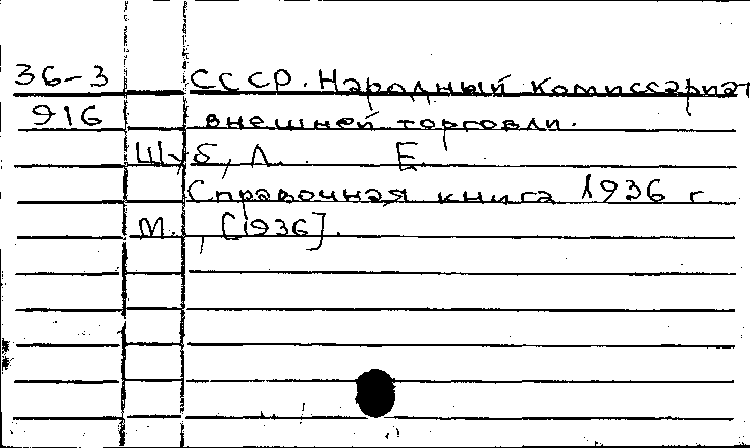 36-3 СССР. Народный комиссариат
916 внешней торговли.
Шуб, Л. Е.
Справочная книга 1936 г.
М., [1936].